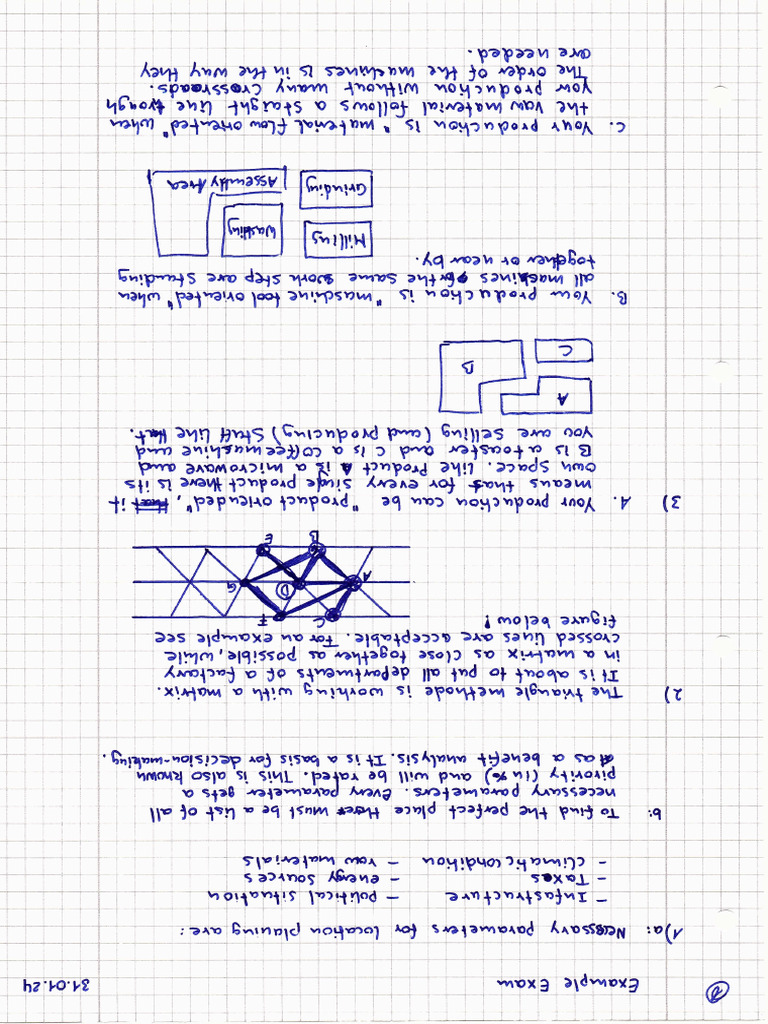 2 Example Exam 31.01.24
1)a: Necessary parameters for location planing are:
- Infastructure - political situation
- Taxes - energy sources
- climatic condition - raw materials
b: To find the perfect place must be a list of all
necessary parameters. Every parameter gets a
pirority (in %) and will be rated. This is also known
as a benefit analysis. It is a basis for decision-making.
2) The triangle methode is working with a matrix.
It is about to put all departments of a factory
in a matrix as close together as possible, while
crossed lines are acceptable. For an example see
figure below!
C F
A D G
B E
3) A. Your production can be "product oriended", it
means that for every single product there is its
own space. Like Product A is a microwave and
B is a toaster and C is a coffeemashine and
you are selling (and producing) stuff like that.
A B
C
B. Your production is "maschine tool oriented" when
all mashines for the same work step are standing
together or near by.
Milling Washing
Grinding Assembly Area
C. Your production is "material flow oriented" when
the raw material follows a straight line trough
your production without many crossroads.
The order of the machines is in the way they
are needed.